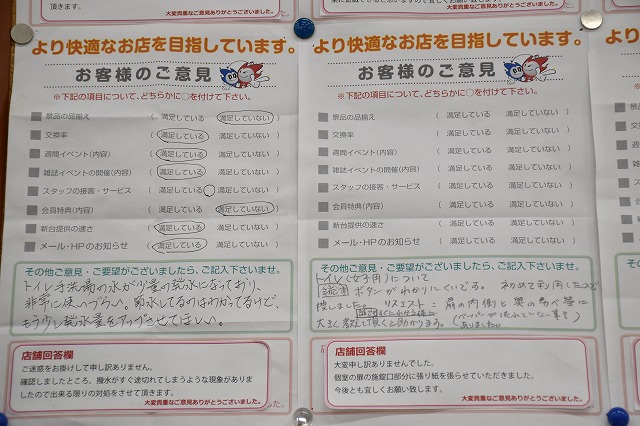 頂きます。
大変貴重なご意見ありがとうございました。
大変貴重なご意見ありがとうございました。
より快適なお店を目指しています。
お客様のご意見
※下記の項目について、どちらかに○を付けて下さい。
景品の品揃え ( 満足している 満足していない )
交換率 ( 満足している 満足していない )
週間イベント(内容) ( 満足している 満足していない )
雑誌イベントの開催(内容) ( 満足している 満足していない )
スタッフの接客・サービス ( 満足している 満足していない )
会員特典(内容) ( 満足している 満足していない )
新台提供の速さ ( 満足している 満足していない )
メール・HPのお知らせ ( 満足している 満足していない )
その他ご意見・ご要望がございましたら、ご記入下さいませ。
トイレ手洗場の水が少量の発水になっており、
非常に使いづらい。節水してるのはわかってるけど、
もう少し発水量をアップさせてほしい。
店舗回答欄
ご迷惑をお掛けして申し訳ありません。
確認しましたところ、撥水がすぐ途切れてしまうような現象がありま
したので出来る限りの対処をさせて頂きます。
大変貴重なご意見ありがとうございました。
より快適なお店を目指しています。
お客様のご意見
※下記の項目について、どちらかに○を付けて下さい。
景品の品揃え ( 満足している 満足していない )
交換率 ( 満足している 満足していない )
週間イベント(内容) ( 満足している 満足していない )
雑誌イベントの開催(内容) ( 満足している 満足していない )
スタッフの接客・サービス ( 満足している 満足していない )
会員特典(内容) ( 満足している 満足していない )
新台提供の速さ ( 満足している 満足していない )
メール・HPのお知らせ ( 満足している 満足していない )
その他ご意見・ご要望がございましたら、ご記入下さいませ。
トイレ(女子用)について
流す ボタンがわかりにくいです。初めて利用したので
探しました。リクエスト:扉の内側と奥の高べ等に
大きく教えて頂くと助かります。
ありました。
店舗回答欄
大変申し訳ありませんでした。
個室の扉の施錠口部分に張り紙を張らせていただきました。
今後とも宜しくお願い致します。
大変貴重なご意見ありがとうございました。